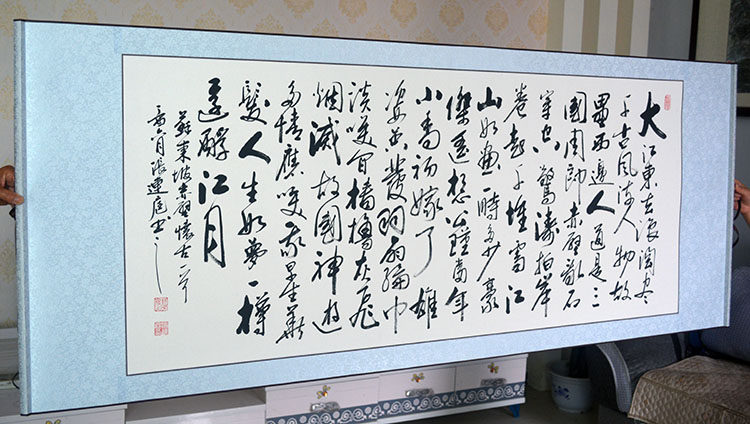 大江東去浪淘盡
千古風流人物故
壘西邊人道是三
國周郎赤壁亂石
穿空驚濤拍岸
卷起千堆雪江
山如畫一時多少豪
傑遙想公瑾當年
小喬初嫁了雄
姿英發羽扇綸巾
談笑間檣櫓灰飛
烟滅故國神遊
多情應笑我早生華
髮人生如夢一樽
還酹江月
蘇東坡赤壁懷古一首
月張連庭書